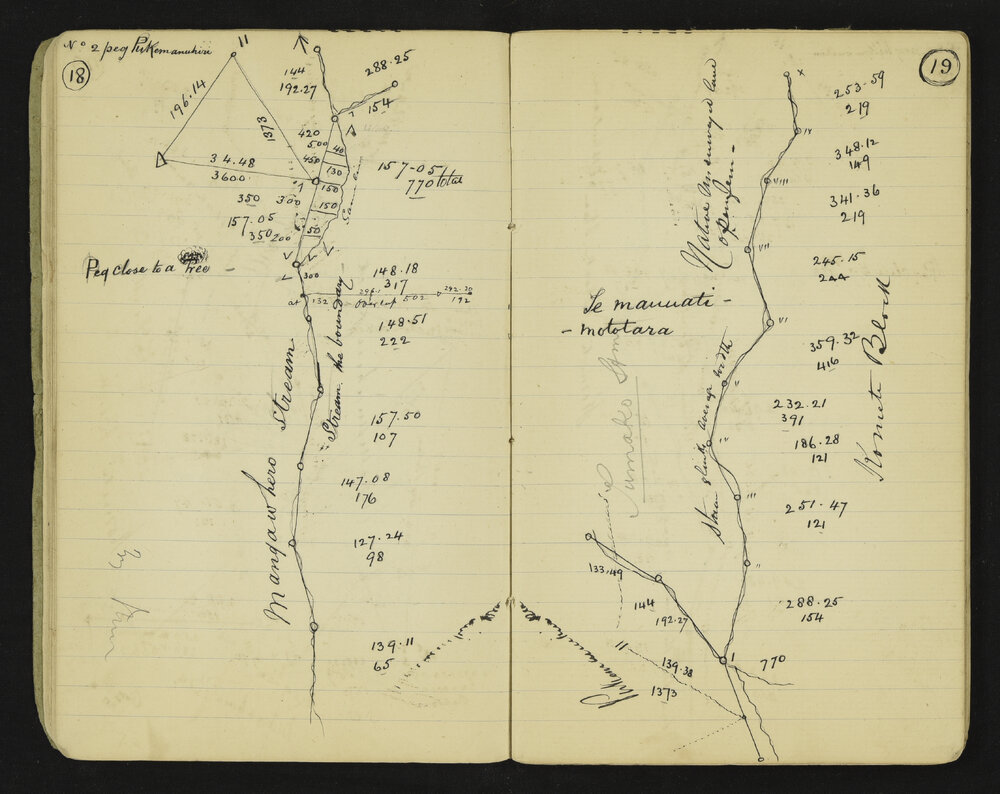 No 2 peg Pukemanuhiri
18
11
196.14
1373
144
192.27
288.25
154
34.48
3600
420
500
450
40
130
150
150
50
157-05
770 total
350
300
157.05
350
200
Peg close to a Tree -
300
148.18
317
at
132
Overlap
502
292.20
192
148.51
222
Stream the boundary
Mangawhero Stream
157.50
107
147.08
176
127.24
98
139.11
65
19
X
253-59
219
IX
348.12
149
VIII
341.36
219
VII
245.15
244
VI
359.32
416
232.21
391
186.28
121
III
251.47
121
11
288.25
154
I
770
Native
Te mauuati -
- mototara
Stream
average width
Block
133.49
144
192.27
11
139.38
1373